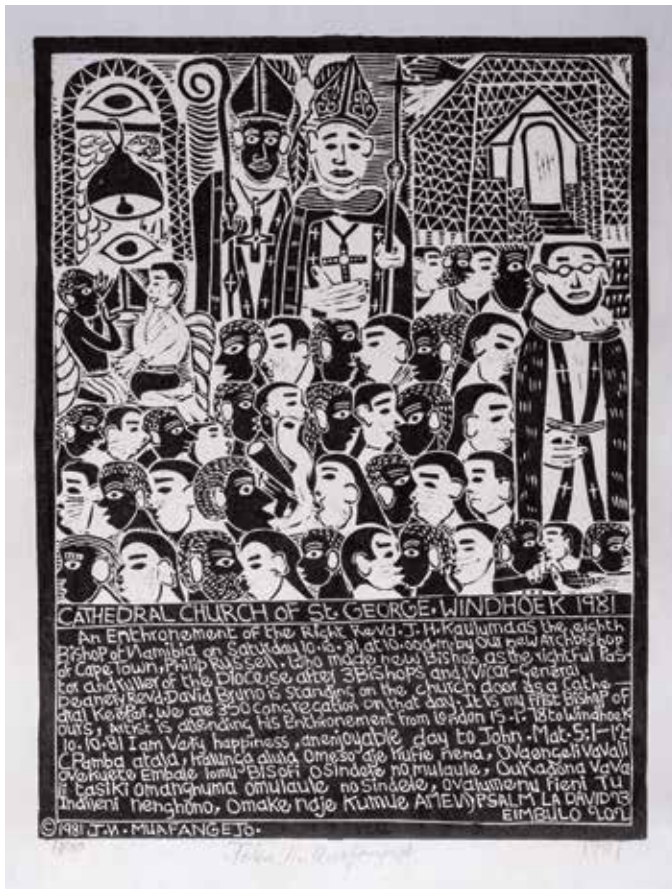 CATHEDRAL CHURCH OF St. GEORGE. WINDHOEK 1981
An Enthronement of the Right Revd. J. H. Kauluma as the eighth
Bishop of Namibia on Saturday 10.10.81, at 10.00am by Our new Archbishop
of Cape Town, Philip Russell. Who made new Bishop as the rightful Pas-
tor and ruller of the Diocese after 3 Bishops and 1 Vicar-General
Deanery Revd. David Bruno is standing on the church door as a Cathe-
dral Keeper. We are 350 congregation on that day. It is my first Bishop of
ours, Artist is attending his Enthronement from London 15. 1. 78 to Windhoek
10.10.81 I am Vary happiness, an enjoyable day to John. Mat. 5:1-12
(Pamba atala, Kalunga
Embale lomu BISOFI OSindele no mulaule,
omulaule no Sindele, ovalumenu
nenghono, Omake naje Kumue AMEN) PSALM LA DAVID 23
EIMBULO 202
©1981 J.N. MUAFANGEJO.
1981